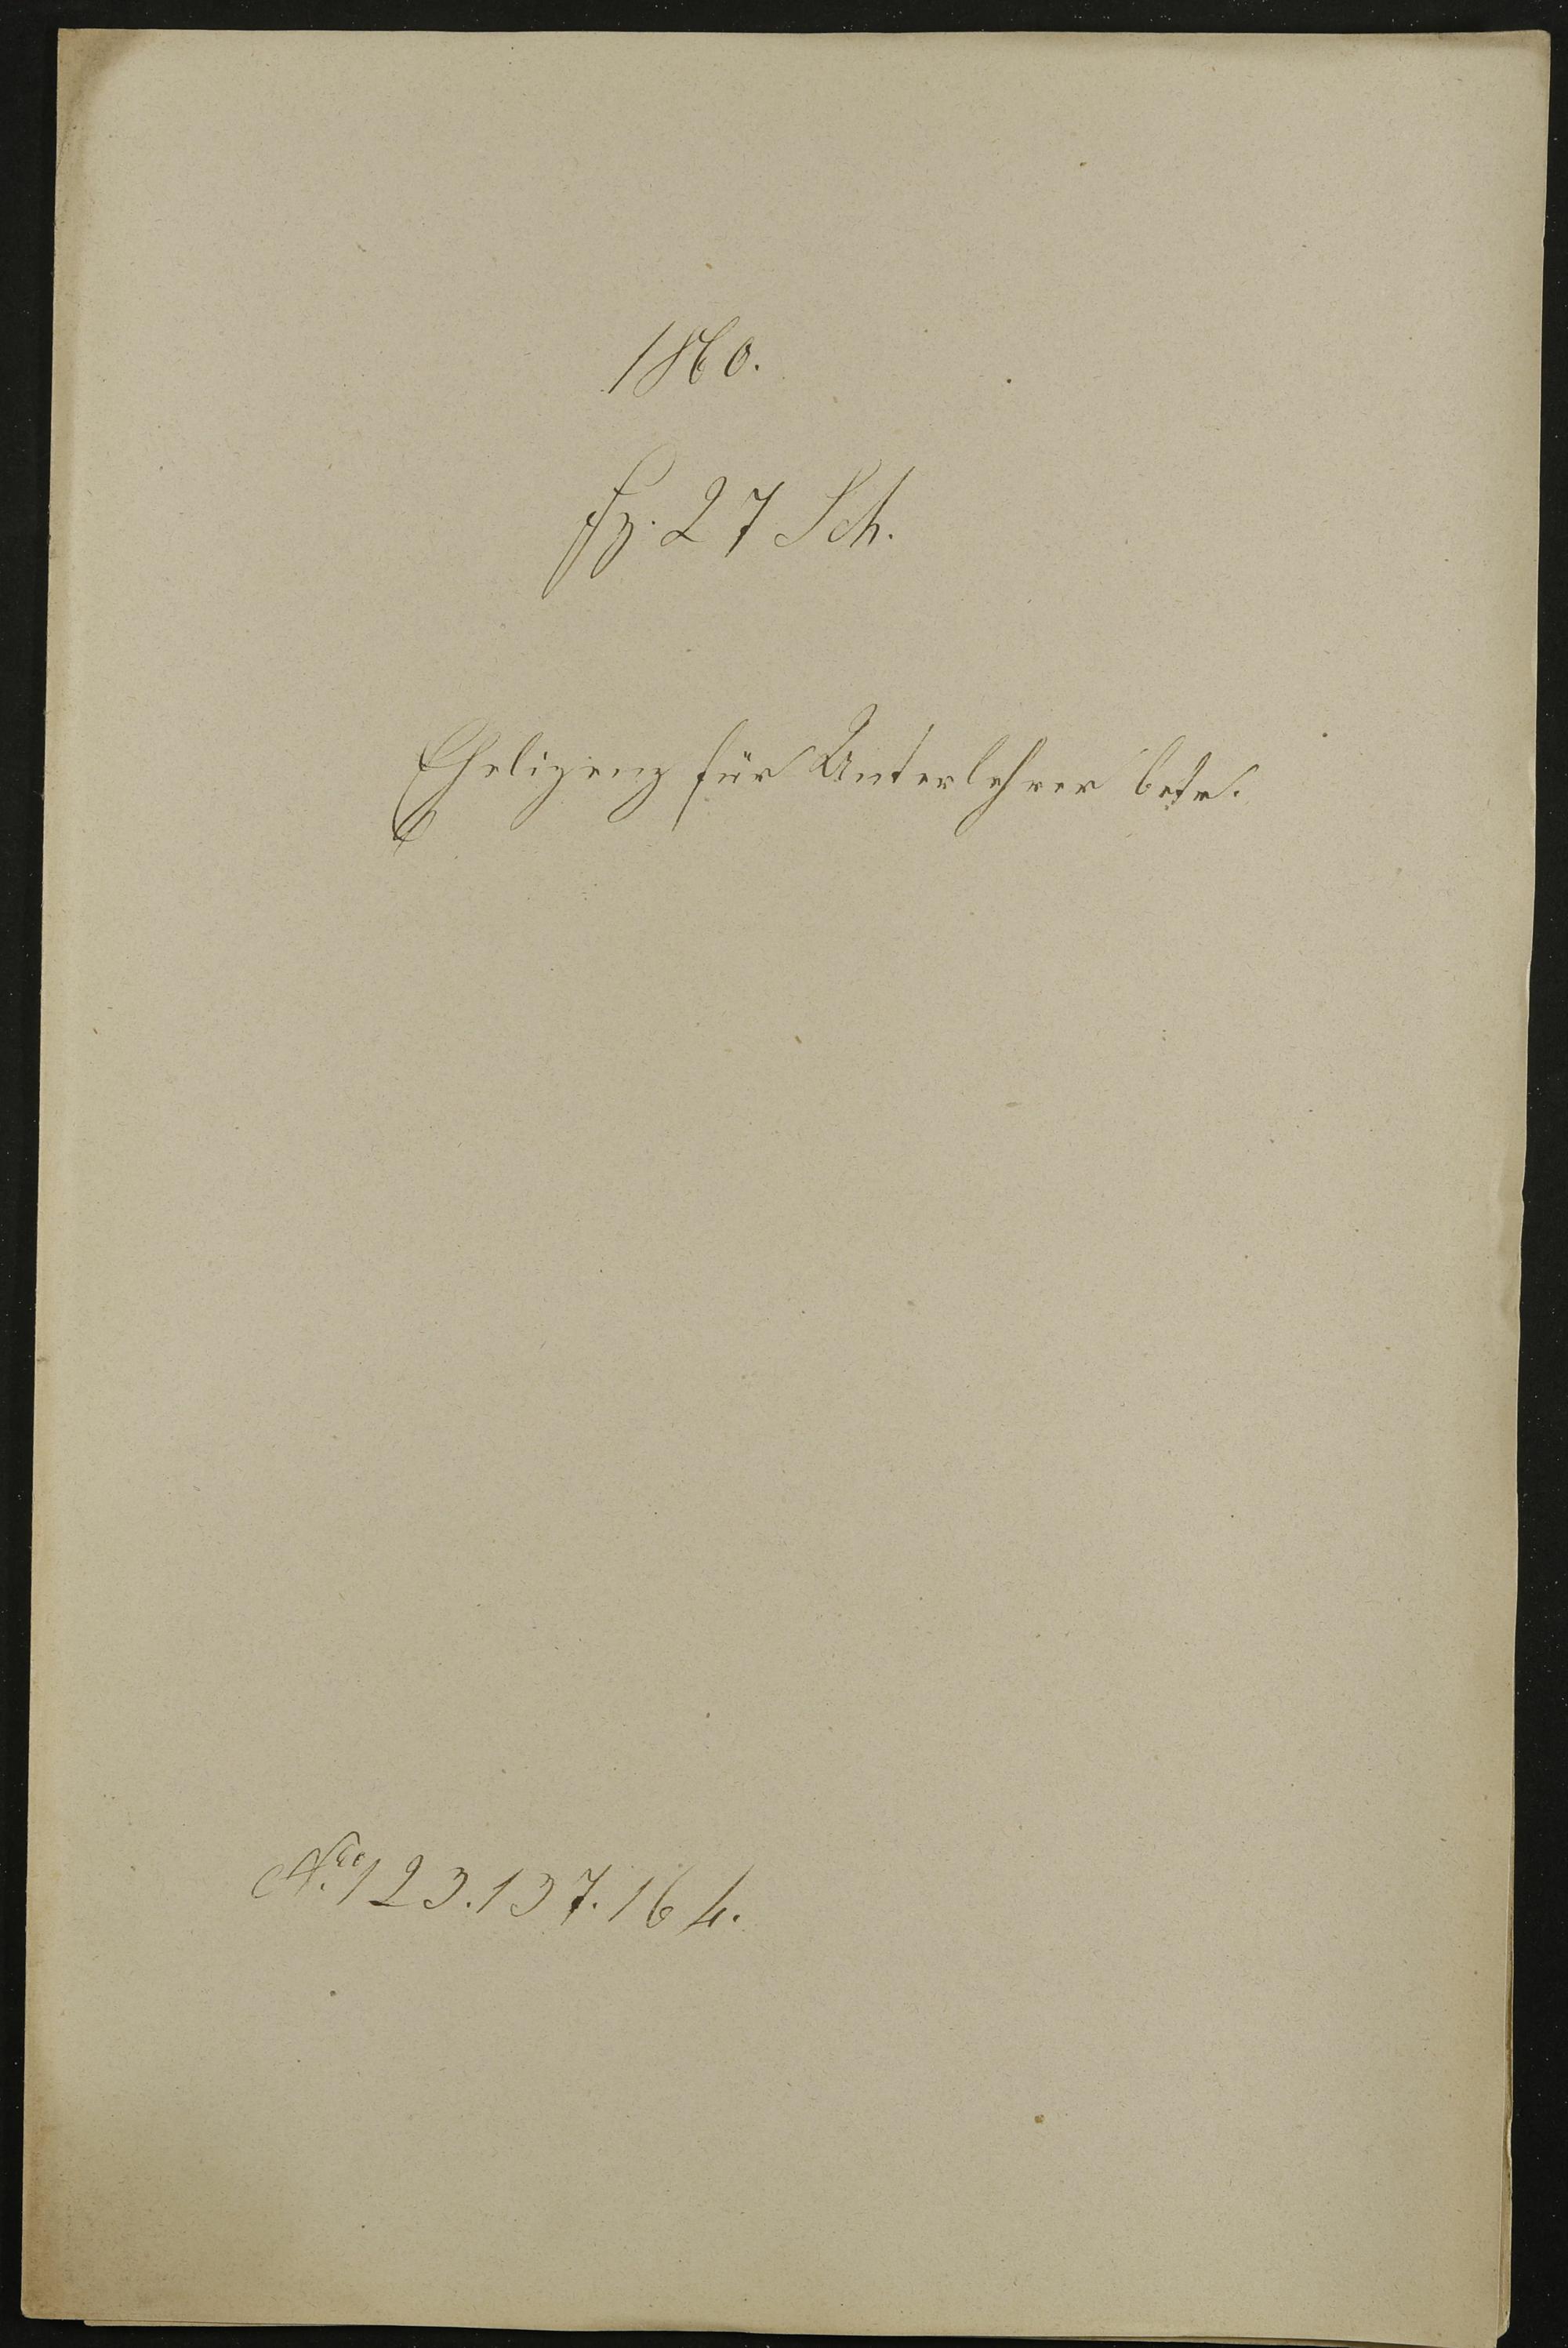 1860.
fz. 27 Sch.
Ehelizenz für Unterlehrer betr.
No. 123.137.164.